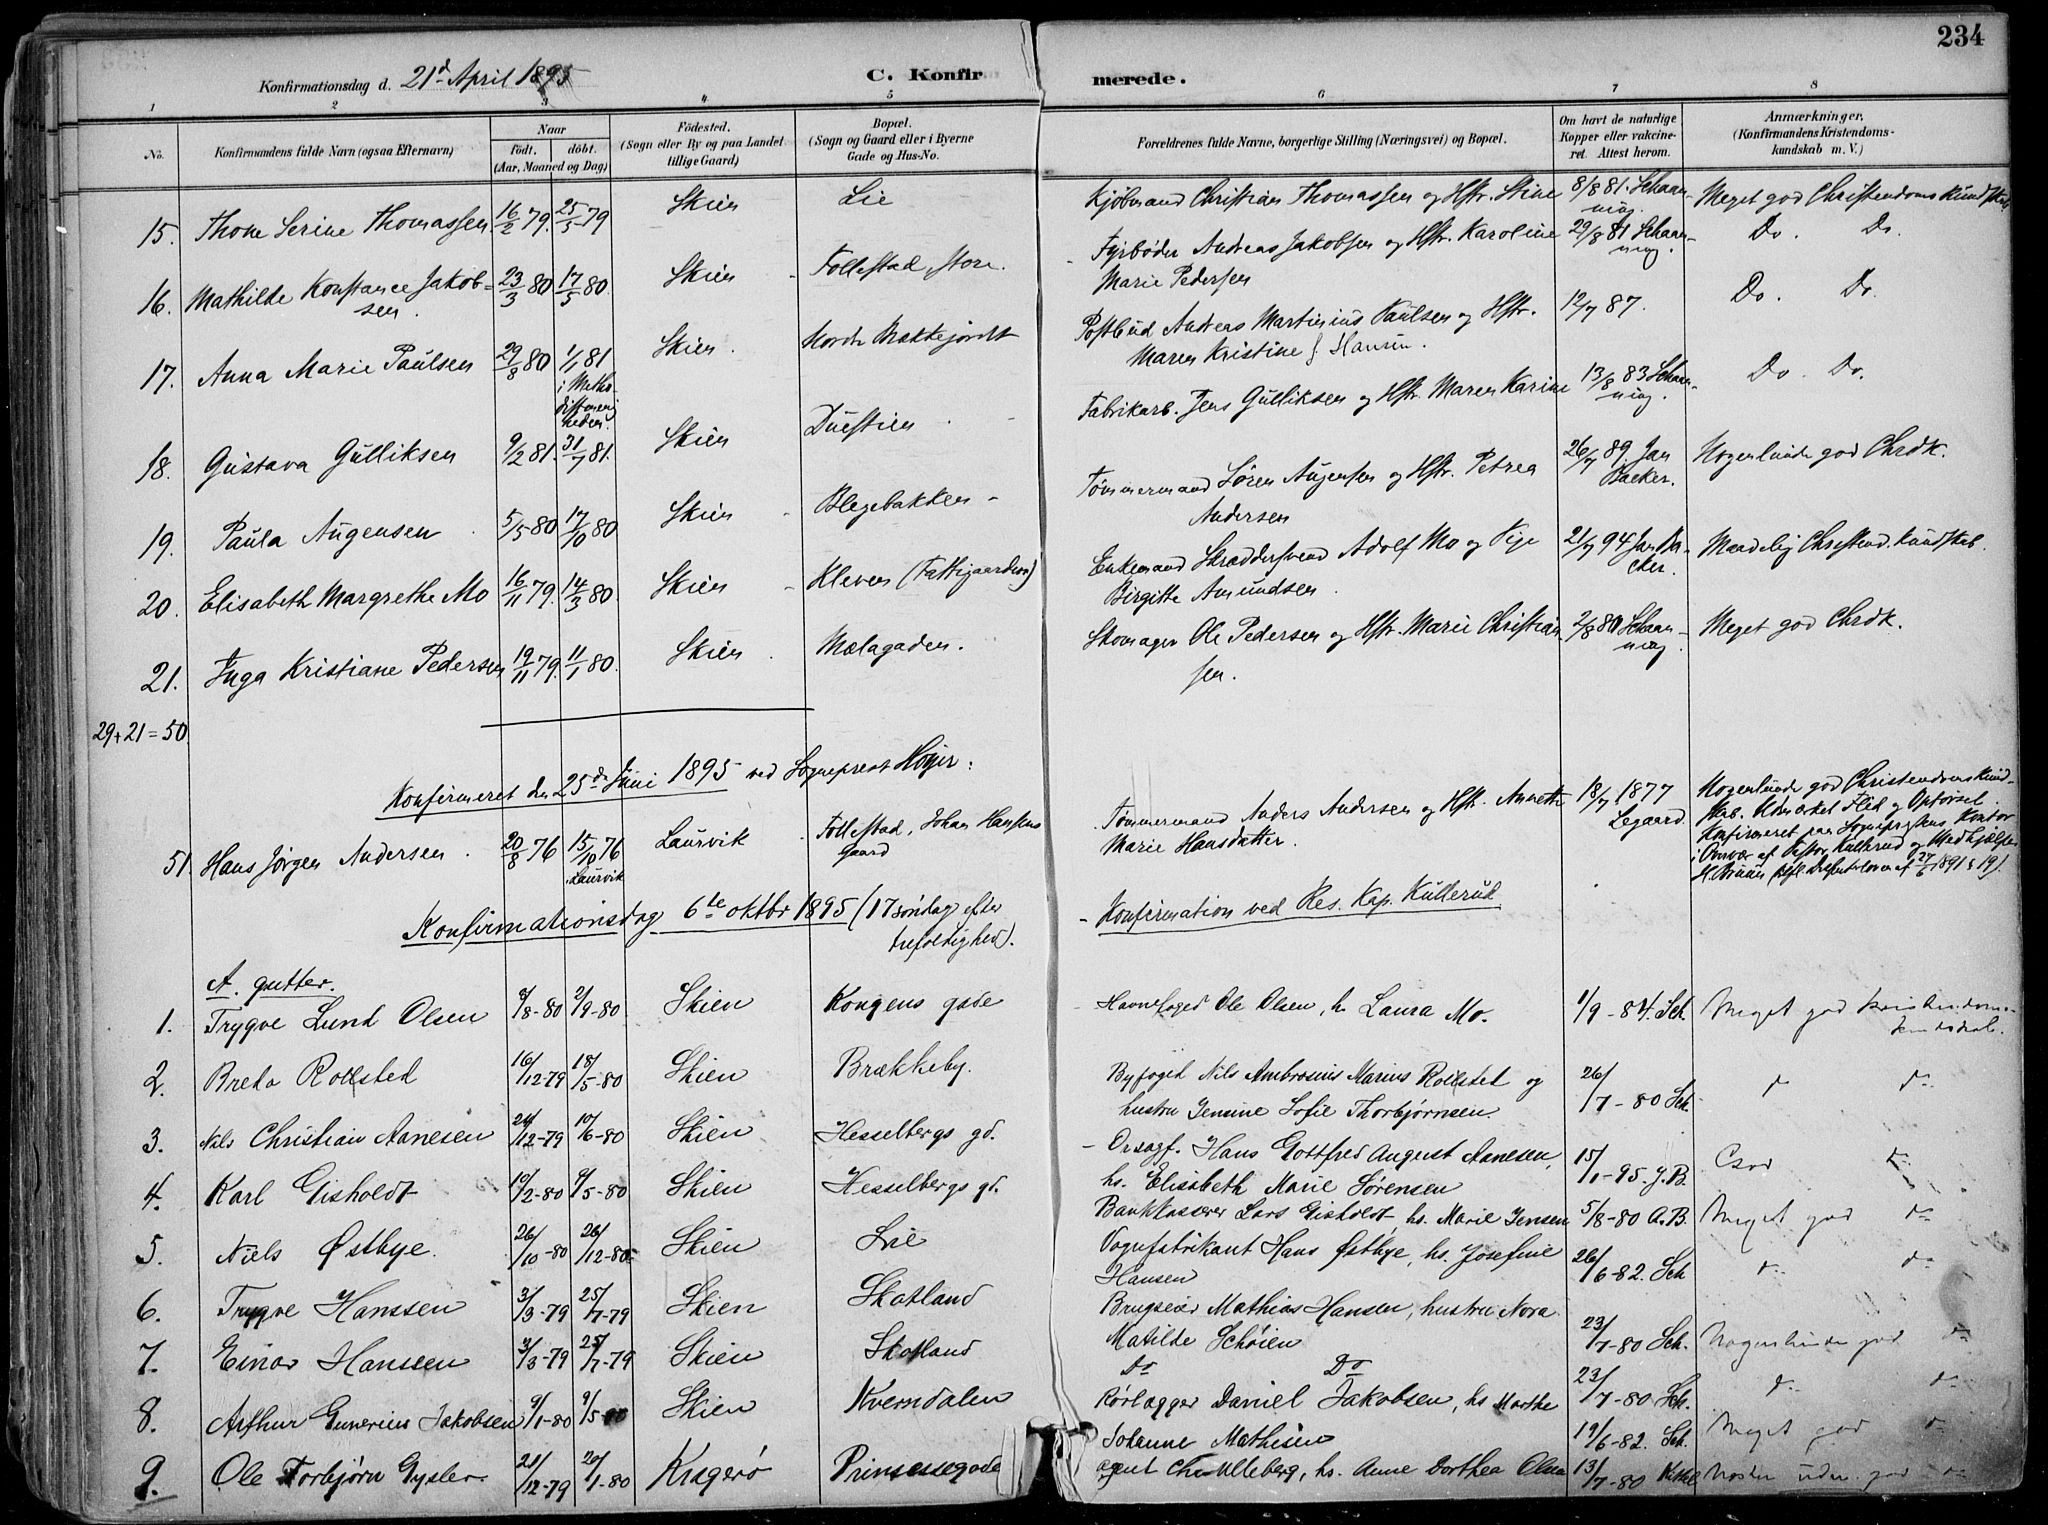 234
Konfirmationsdag d. 21de April 1895
C. Konfirmerede.
1 2 3 4 5 6 7 8
No.
Konfirmandens fulde Navn (ogsaa Efternavn)
Naar
födt. döbt.
(Aar, Maaned og Dag)
Födested.
(Sogn eller By og paa Landet
tillige Gaard)
Bopæl.
(Sogn og Gaard eller i Byerne
Gade og Hus-No.
Forældrenes fulde Navne, borgerlige Stilling (Næringsvei) og Bopæl.
Om havt de naturlige
Kopper eller vakcine-
ret. Attest herom.
Anmærkninger.
(Konfirmandens Kristendoms-
kundskab m. V.)
15. Thone Serine Thomassen 16/2 79. 25/5 79 Skien Lie Kjøbmand Christian Thomassen og Hstr. Stine 8/8 81. Schaan- Meget god Christendomskundskab
ning.
16. Mathilde Konstance Jakob- 23/3 80 17/5 80. Skien Follestad store. Fyrbøder Andreas Jakobsen og Hstr. Karoline 29/8 81 Schaan- Do. Do.
sen. Marie Pedersen ning.
17. Anna Marie Paulsen 29/8 80 1/1 81 Skien Nordre Brækkejordet Postbud Andreas Martinius Paulsen og Hstr. 12/7 87. Do. Do.
i Metho-
distmenig-
heden. Maren Kristine f. Hansen.
18. Gustava Gulliksen 9/2 81. 31/7 81. Skien Duestien Fabrikarb. Jens Gulliksen og Hstr. Maren Karine 13/8 83 Schaan- Do. Do.
ning.
19. Paula Augensen 5/5 80 17/10 80 Skien Blegebakken Tømmermand Søren Augensen og Hstr. Petrea 26/7 89. Jan Nogenlunde god Chrdk.
Andersen Backer.
20. Elisabeth Margrethe Mo 16/11 79. 14/3 80. Skien Kleven (Fattiggaarden) Enkemand Skræddersvend Adolf Mo og Pige 21/7 94 Jan Ba- Maadelig Christend.kundskab.
Birgitte Amundsen. cker.
21. Inga Kristiane Pedersen 19/11 79. 11/1 80. Skien Mælagaden. Skomager Ole Pedersen og Hstr. Marie Christian- 2/8 80 Schaan- Meget god Chrdk.
sen. ning.
29+21=50.
Konfirmeret den 25de Juni 1895 ved Sogneprest Høyer.
51. Hans Jørgen Andersen. 20/8 76 15/10 76 Laurvik Follestad, Johan Hansens Tømmermand Anders Andersen og Hstr. Annette 18/7 1877
Laurvik Gaard Marie Hansdatter. Legaard.
Nogenlunde god Christendomskund-
skab. Udmærket Flid og Opførsel.
Konfirmeret paa Sogneprestens Kontor
i Overvær af Pastor Kullerud og Medhjælper
Konfirmationsdag 6te oktbr 1895 (17 søndag efter
trefoldighed). Konfirmation ved Res. Kap. Kullerud.
A. gutter.
1. Trygve Lund Olsen 8/8-80 2/9-80 Skien Kongens gade Havnefoged Ole Olsen, h. Laura Mo. 1/9-84. Sch. Meget god kristendoms-
kundskab.
2. Breda Rollsted 16/12-79 18/5-80 Skien Brækkeby. Byfoged Nils Ambrosius Marius Rollstet og 26/7-80 Sch. d do
hustru Jensine Sofie Thorbjørnsen.
3. Nils Christian Aanesen 24/12-79 10/6-80 Skien Hesselbergs gd. Orsagf. Hans Gottfred August Aanesen, 15/1-95. J.B. God do
hs. Elisabeth Marie Sørensen
4. Karl Gisholdt 19/2-80 9/5-80 Skien Hesselbergs gd. Bankkasserer Lars Gisholdt, hs. Marie Jensen 5/8-80 A.B. Meget god do
5. Niels Østbye. 26/10-80 26/12-80 Skien Lie Vognfabrikant Hans Østbye, hs. Josefine 26/6-82. Sch do do
Hansen
6. Trygve Hanssen 3/3-79 25/7-79 Skien Skotland Brugseier Mathias Hansen, hustru Nora 23/7-80 Sch. Nogenlunde god do
Matilde Schøien
7. Einar Hansen 3/3-79 25/7-79 Skien Skotland Do Do 23/7-80 Sch. do do
8. Arthur Gunerius Jakobsen 9/1-80 9/5-80 Skien Kverndalen Rørlægger Daniel Jakobsen, hs Marthe 19/6-82. Sch. Meget god do
Johanne Mathisen
9. Ole Torbjørn Gysler 21/12-79 20/1-80 Kragerø Prinsessegade agent Chr. Ulleberg, hs. Anne Dorthea Olsen 13/7-80 god do